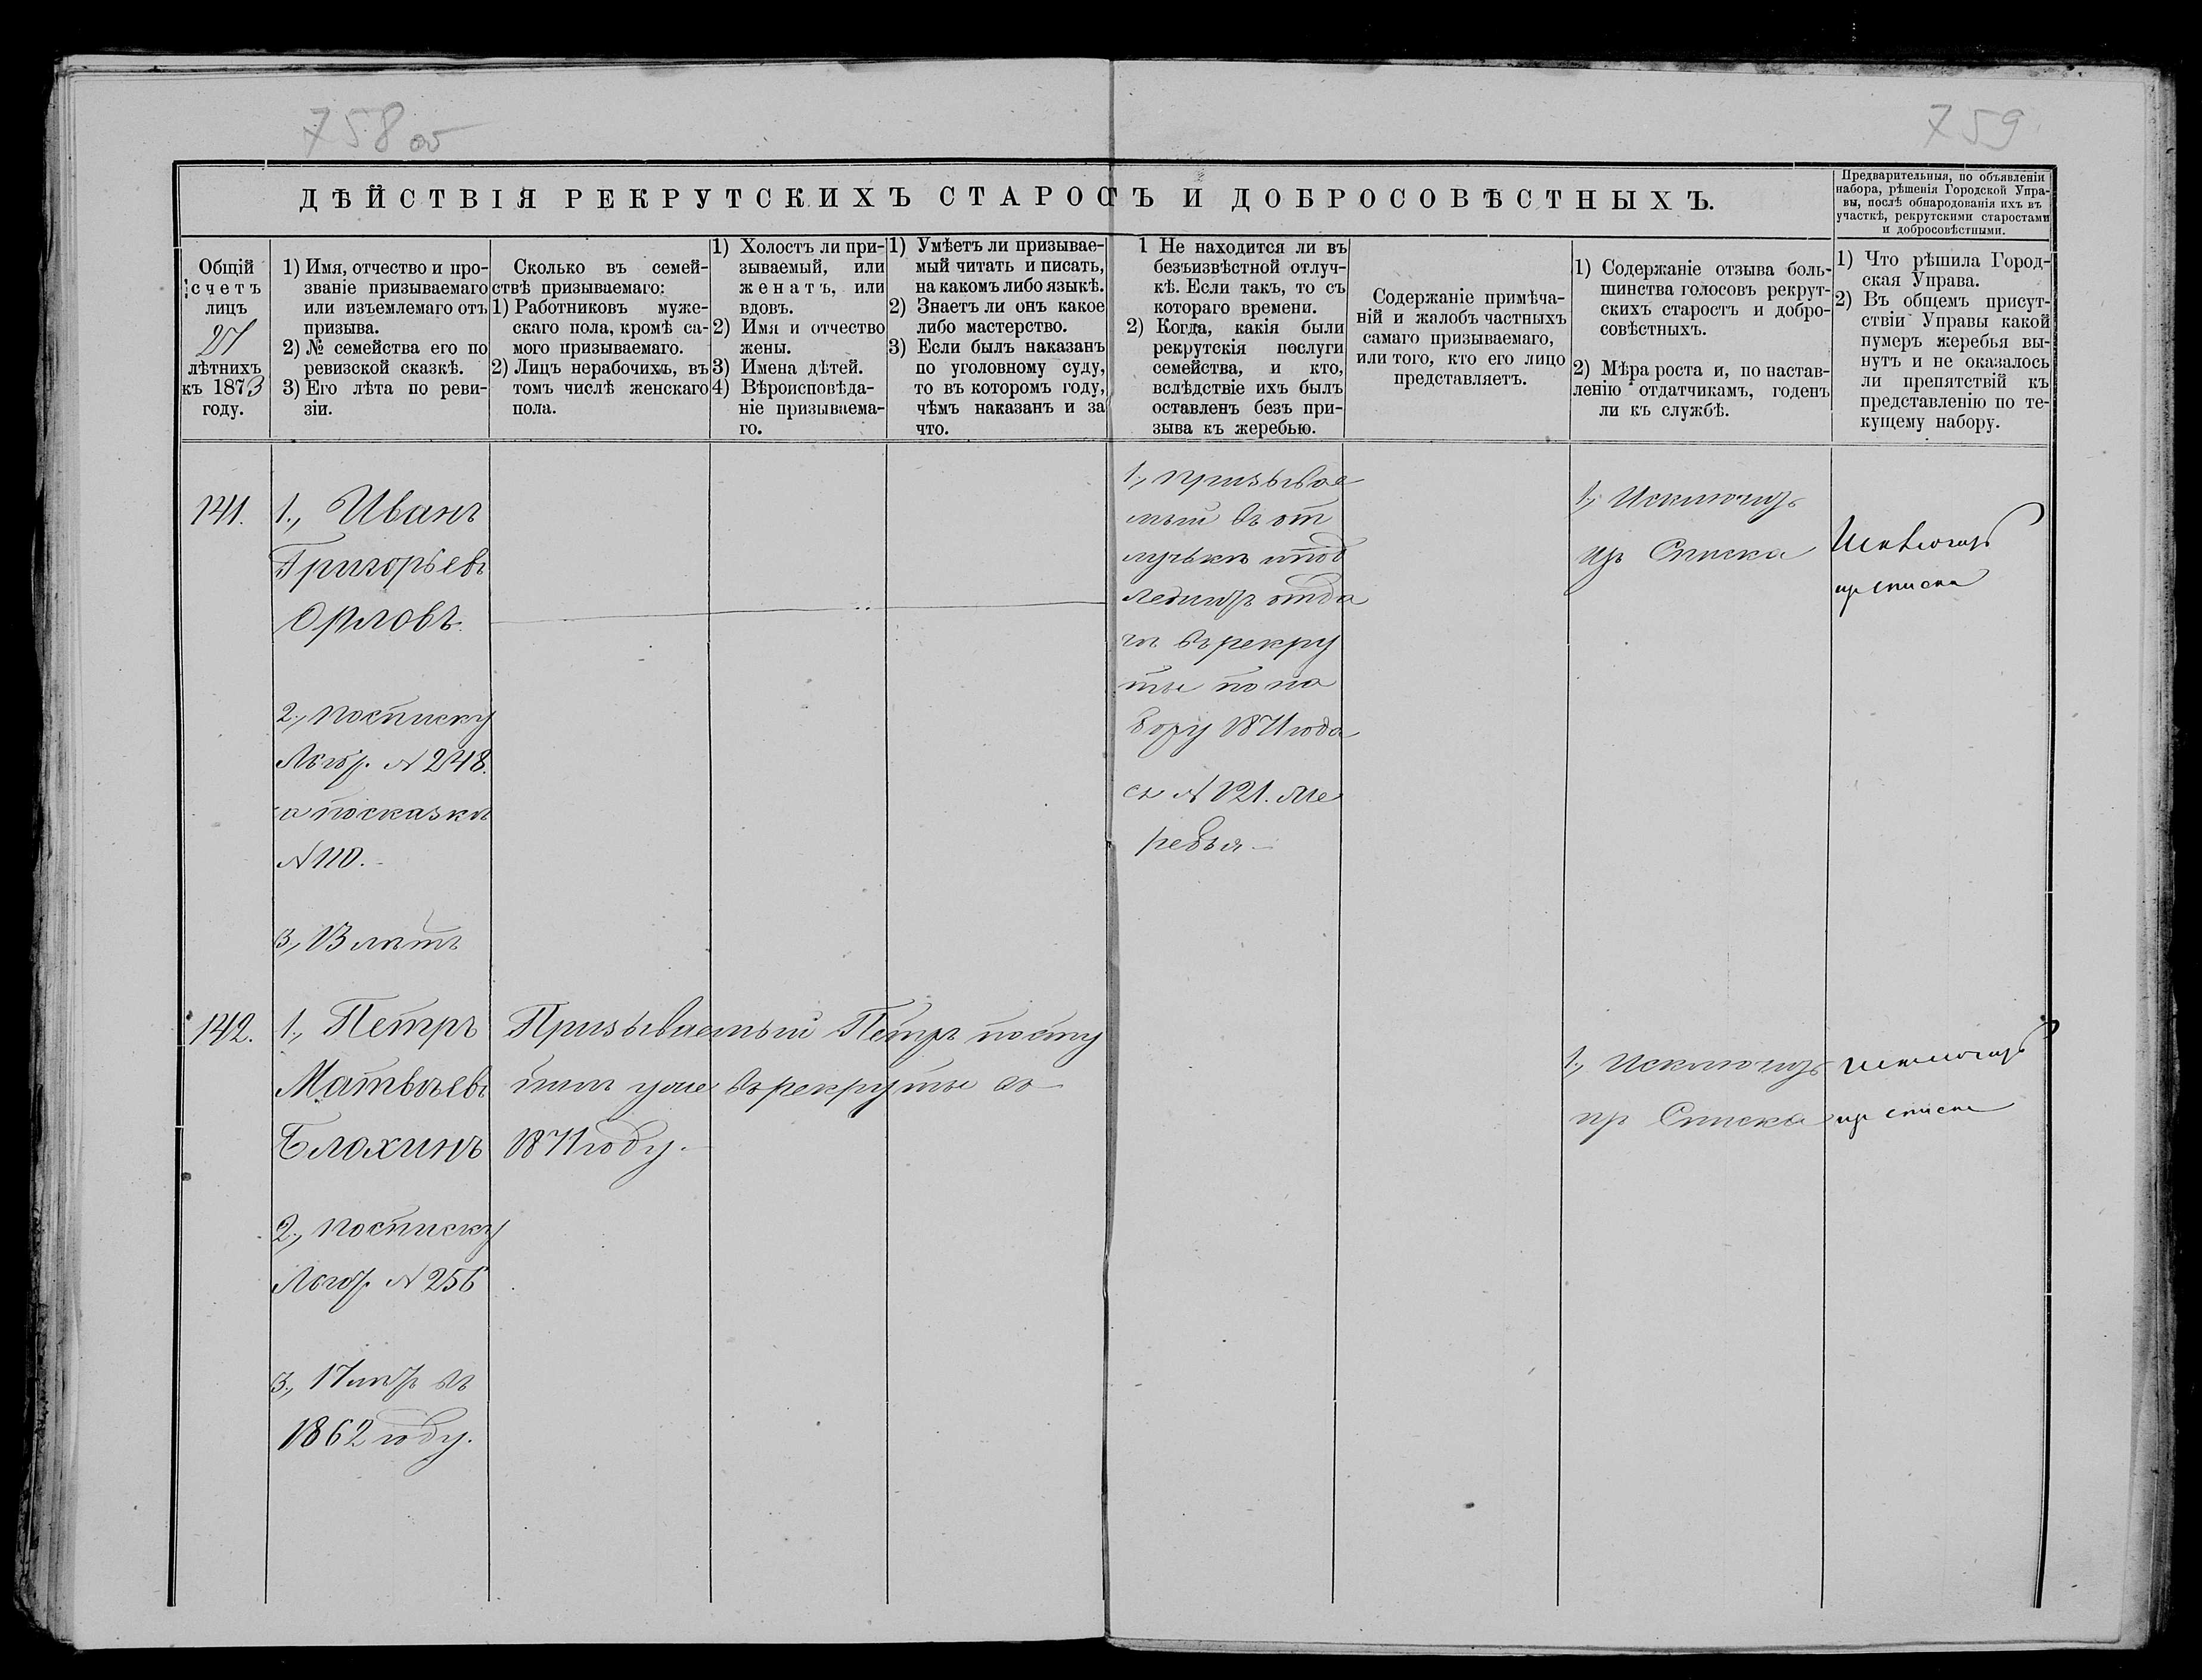 758 об
759
ДѢЙСТВІЯ РЕКРУТСКИХЪ СТАРОСТЪ И ДОБРОСОВѢСТНЫХЪ.
Предварительныя, по объявленіи
набора, рѣшенія Городской Упра-
вы, послѣ обнародованія ихъ въ
участкѣ, рекрутскими старостами
и добросовѣстными.
Общій
счетъ
лицъ
21
лѣтнихъ
къ 1873
году.
1) Имя, отчество и про-
званіе призываемаго
или изъемлемаго отъ
призыва.
2) № семейства его по
ревизской сказкѣ.
3) Его лѣта по реви-
зіи.
Сколько въ семей-
ствѣ призываемаго:
1) Работниковъ муже-
скаго пола, кромѣ са-
мого призываемаго.
2) Лицъ нерабочихъ, въ
томъ числѣ женскаго
пола.
1) Холостъ ли при-
зываемый, или
женатъ, или
вдовъ.
2) Имя и отчество
жены.
3) Имена дѣтей.
4) Вѣроисповѣда-
ніе призываема-
го.
1) Умѣетъ ли призывае-
мый читать и писать,
на какомъ либо языкѣ.
2) Знаетъ ли онъ какое
либо мастерство.
3) Если былъ наказанъ
по уголовному суду,
то въ которомъ году,
чѣмъ наказанъ и за
что.
1 Не находится ли въ
безъизвѣстной отлуч-
кѣ. Если такъ, то съ
котораго времени.
2) Когда, какія были
рекрутскія послуги
семейства, и кто,
вслѣдствіе ихъ былъ
оставленъ безъ при-
зыва къ жеребью.
Содержаніе примѣча-
ній и жалобъ частныхъ
самаго призываемаго,
или того, кто его лицо
представляетъ.
1) Содержаніе отзыва боль-
шинства голосовъ рекрут-
скихъ старостъ и добро-
совѣстныхъ.
2) Мѣра роста и, по настав-
ленію отдатчикамъ, годенъ
ли къ службѣ.
1) Что рѣшила Город-
ская Управа.
2) Въ общемъ присут-
ствіи Управы какой
нумеръ жеребья вы-
нутъ и не оказалось
ли препятствій къ
представленію по те-
кущему набору.
141.
1., Иванъ
Григорьевъ
Орловъ.
2., по списку
№ 248.
а по сказкѣ
№ 110.
3., 13 лѣтъ
1., призывае
мый въ от
лучькѣ и под
лежитъ отда
чи въ рекру
ты по на
бору 1871 года
съ № 121. Же
ребья
1., Исключить
изъ Списка
Исключить
изъ списка
142.
1., Петръ
Матвѣевъ
Блохинъ
2., по списку
№ 256
3., 17 лѣтъ въ
1862 году.
Призываемый Петръ посту
пилъ уже въ рекруты въ
1871 году.
1., Исключить
изъ Списка
Исключить
изъ списка